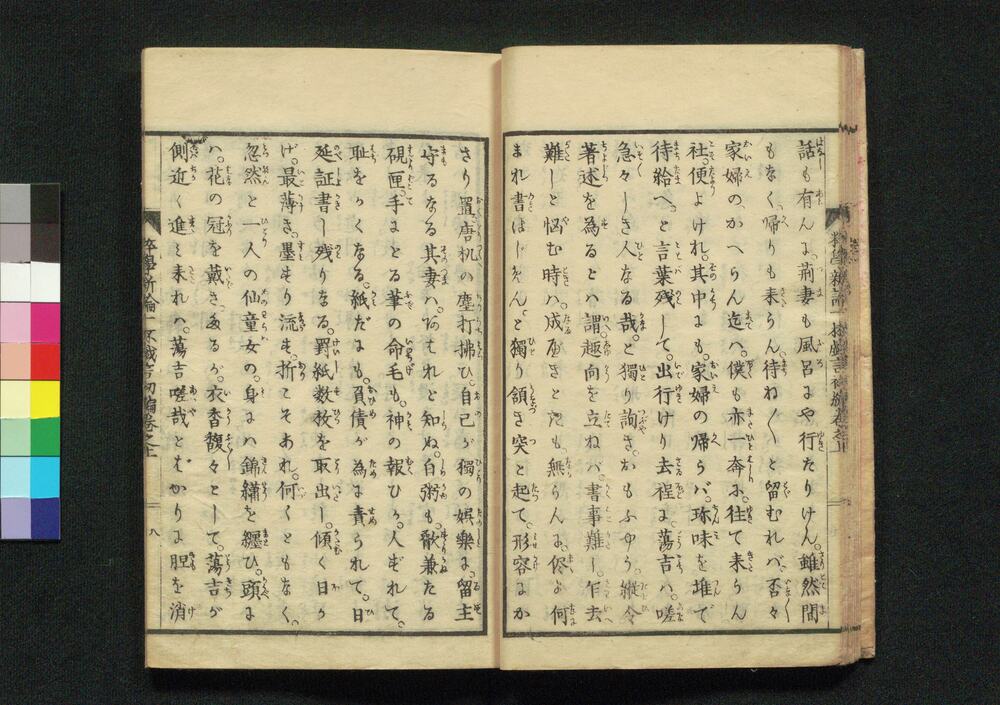 話も有んに。荊妻も風呂にや行たりけん。雖然間
もなく帰りも来らん。待ね〳〵と留むれバ。否々
家婦の。かへらん迄ハ。僕も亦一奔に。往て来らん
社。便よけれ。其中にも。家婦の帰らバ。珎味を堆で
待給へ。と言葉残して。出行けり去程に。蕩吉ハ。嗟
急々しき人なる哉。と獨り詢き。おもふやう。縦令
著述を為るとハ謂。趣向を立ねバ書事難し。乍去
難しと悩む時ハ。成居きとたも。無らんに。侭よ何
まれ書はじめん。と獨り領き突と起て。形容にか
さり置唐机の塵打拂ひ。自己が獨の娯樂に。留主
守るなる其妻ハ。それと知ね。白粥も。歠兼たる
硯匣。手にとる筆の命毛も。神の報ひか。人ずれて。
耻をかくなる。紙だにも。負債が為に責られて。日
延証書し残りなる。罫紙数枚を取出し。傾く日か
げ。最薄き。墨すり流す。折こそあれ。何くともなく。
忽然と一人の仙童女の。身にハ錦繍を纏ひ。頭に
ハ。花の冠を戴き。たるが。衣香馥々として。蕩吉が
側近く進ミ来れハ。蕩吉嗟哉とばかりに胆を消
八